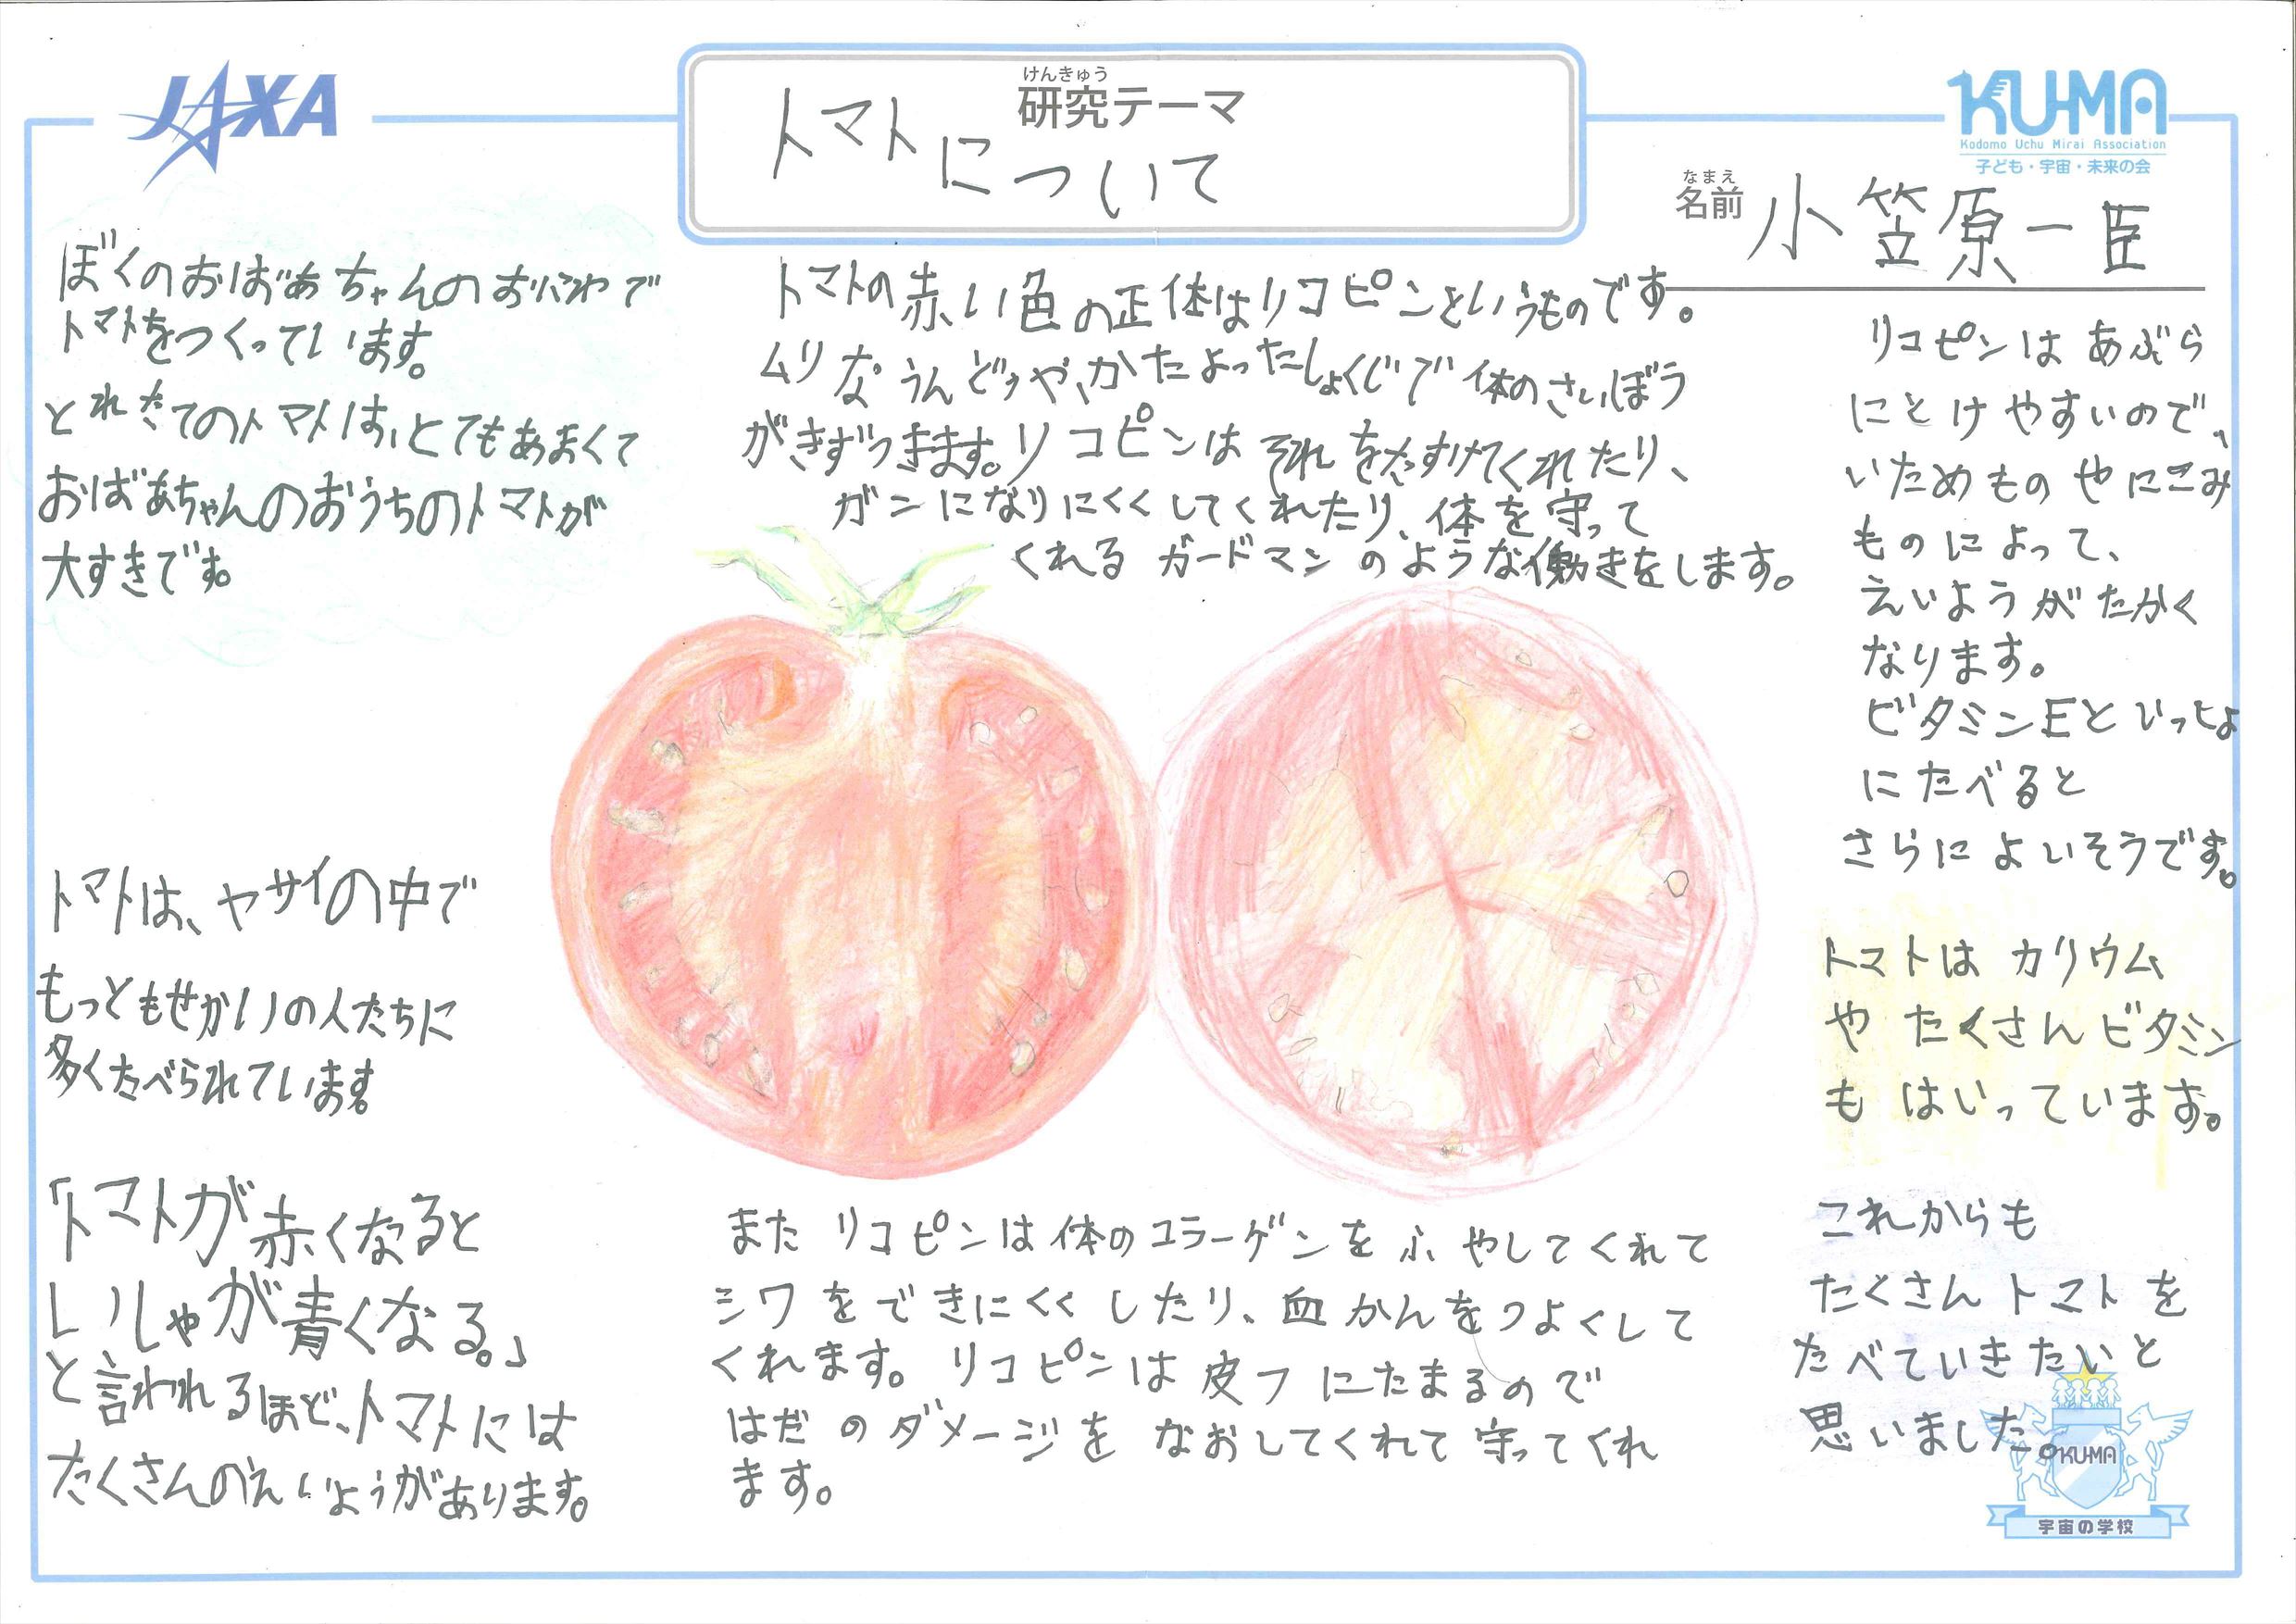 JAXA
けんきゅう
研究テーマ
トマトについて
KUMA
Kodomo Uchu Mirai Association
子ども・宇宙・未来の会
なまえ
名前 小笠原一臣
ぼくのおばあちゃんのおにわで
トマトをつくっています。
とれたてのトマトは、とてもあまくて
おばあちゃんのおうちのトマトが
大すきです。
トマトは、ヤサイの中で
もっともせかいの人たちに
多くたべられています。
「トマトが赤くなると
いしゃが青くなる。」
と言われるほど、トマトには
たくさんのえいようがあります。
トマトの赤い色の正体はリコピンというものです。
ムリなうんどうや、かたよったしょくじで体のさいぼう
がきずつきます。リコピンはそれをたすけてくれたり、
ガンになりにくくしてくれたり、体を守って
くれるガードマンのような働きをします。
また リコピンは体のコラーゲンをふやしてくれて
シワをできにくくしたり、血かんをつよくして
くれます。リコピンは皮フにたまるので
はだのダメージをなおしてくれて守ってくれ
ます。
リコピンはあぶら
にとけやすいので、
いためものやにこみ
ものによって、
えいようがたかく
なります。
ビタミンEといっしょ
にたべると
さらによいそうです。
トマトはカリウム
やたくさんビタミン
もはいっています。
これからも
たくさんトマトを
たべていきたいと
思いました。
KUMA
宇宙の学校